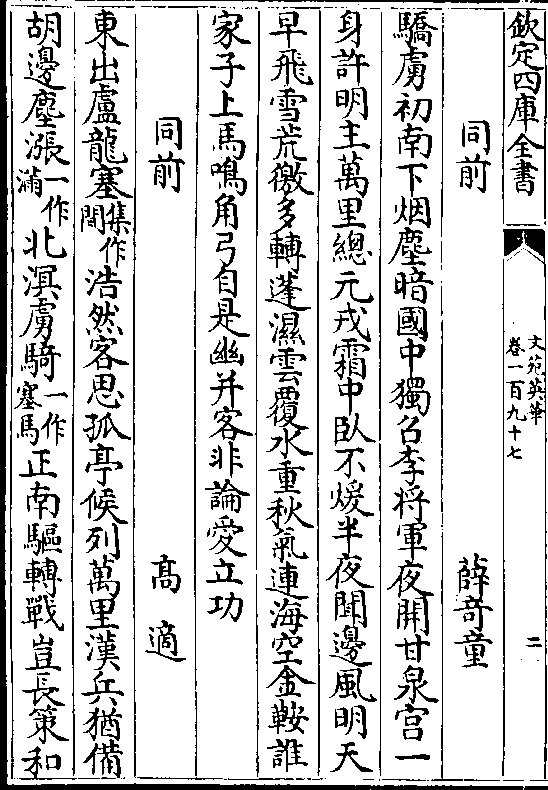 欽定四庫全書
文苑英華
卷一百九十七
二
同前 薛奇童
驕虜初南下烟塵暗國中獨召李將軍夜開甘泉宫一
身許明主萬里總元戎霜中臥不煖半夜聞邊風明天
早飛雪荒徼多轉蓬濕雲覆水重秋氣連海空金鞍誰
家子上馬鳴角弓自是幽并客非論愛立功
同前 高適
東出盧龍塞集作間浩然客思孤亭候列萬里漢兵猶備
胡邊塵漲一作滿北溟虜騎一作塞馬正南驅轉戰豈長策和